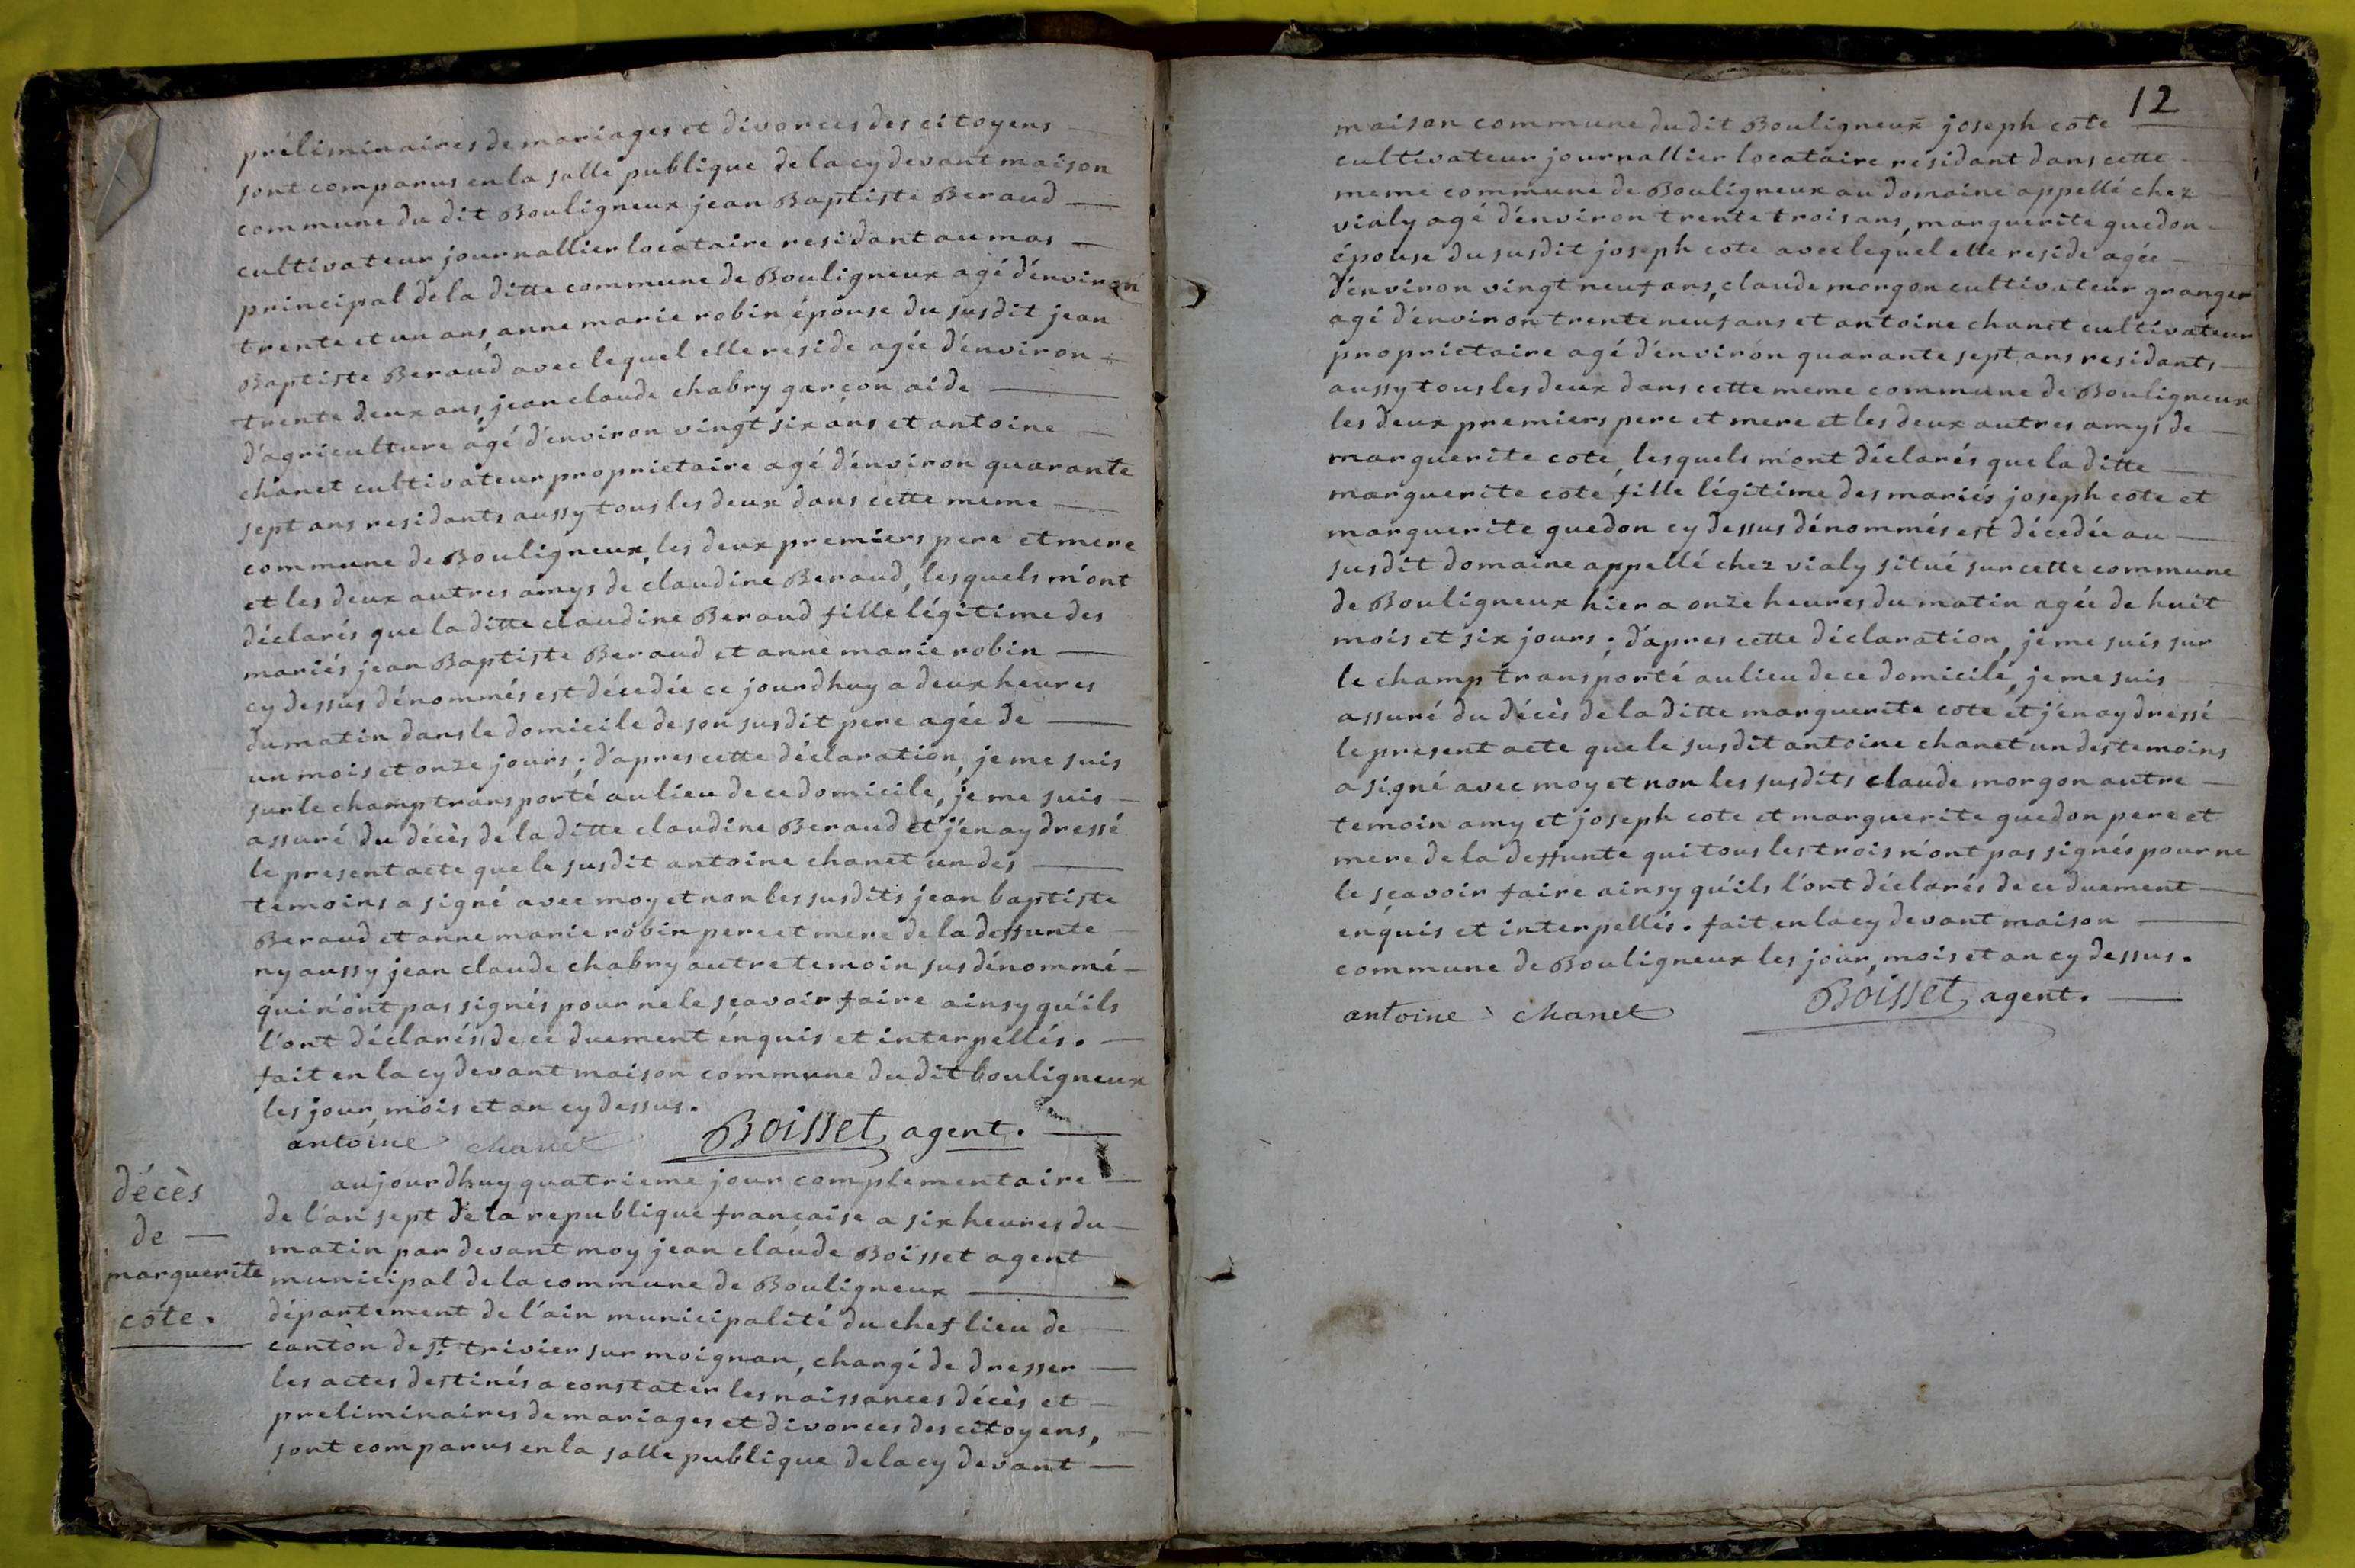 préliminaires de mariages et divorces des citoyens
sont comparus en la salle publique de la cy devant maison
commune du dit Bouligneux jean Baptiste Beraud
cultivateur journallier locataire residant au mas
principal de la ditte commune de Bouligneux agé d'environ
trente et un ans, anne marie robin épouse du susdit jean
Baptiste Beraud avec lequel elle reside agée d'environ
trente deux ans, jean claude chabry garçon aide
d'agriculture agé d'environ vingt six ans et antoine
chanet cultivateur proprietaire agé d'environ quarante
sept ans residants aussy tous les deux dans cette meme
commune de Bouligneux, les deux premiers pere et mere
et les deux autres amys de claudine Beraud, lesquels m'ont
déclarés que la ditte claudine Beraud fille légitime des
mariés jean Baptiste Beraud et anne marie robin
cy dessus dénommés est décedée ce jourdhuy a deux heures
du matin dans le domicile de son susdit pere agée de
un mois et onze jours ; d'apres cette déclaration, je me suis
sur le champ transporté au lieu de ce domicile, je me suis
assuré du décès de la ditte claudine Beraud et j'en ay dressé
le present acte que le susdit antoine chanet un des
temoins a signé avec moy et non les susdits jean baptiste
Beraud et anne marie robin pere et mere de la deffunte
ny aussy jean claude chabry autre temoin sus dénommé
qui n'ont pas signés pour ne le sçavoir faire ainsy qu'ils
l'ont déclarés de ce duement enquis et interpellés.
fait en la cy devant maison commune du dit bouligneux
les jour, mois et an cy dessus.
antoine chanet Boisset, agent.
décès
de
marguerite
cote.
aujourdhuy quatrieme jour complementaire
de l'an sept de la republique française a six heures du
matin par devant moy jean claude Boisset agent
municipal de la commune de Bouligneux
département de l'ain municipalité du chef lieu de
canton de st. trivier sur moignan, chargé de dresser
les actes destinés a constater les naissances décès et
preliminaires de mariages et divorces des citoyens,
sont comparus en la salle publique de la cy devant
12
maison commune du dit Bouligneux joseph cote
cultivateur journallier locataire residant dans cette
meme commune de Bouligneux au domaine appellé chez
vialy agé d'environ trente trois ans, marguerite guedon
épouse du susdit joseph cote avec lequel elle reside agée
d'environ vingt neuf ans, claude morgon cultivateur granger
agé d'environ trente neuf ans et antoine chanet cultivateur
proprietaire agé d'environ quarante sept ans residants
aussy tous les deux dans cette meme commune de Bouligneux
les deux premiers pere et mere et les deux autres amys de
marguerite cote, lesquels m'ont déclarés que la ditte
marguerite cote fille légitime des mariés joseph cote et
marguerite guedon cy dessus dénommés est décedée au
susdit domaine appellé chez vialy situé sur cette commune
de Bouligneux hier a onze heures du matin agée de huit
mois et six jours ; d'apres cette déclaration, je me suis sur
le champ transporté au lieu de ce domicile, je me suis
assuré du décès de la ditte marguerite cote et j'en ay dressé
le present acte que le susdit antoine chanet un des temoins
a signé avec moy et non les susdits claude morgon autre
temoin amy et joseph cote et marguerite guedon pere et
mere de la deffunte qui tous les trois n'ont pas signés pour ne
le sçavoir faire ainsy qu'ils l'ont déclarés de ce duement
enquis et interpellés. fait en la cy devant maison
commune de Bouligneux les jour, mois et an cy dessus.
antoine chanet Boisset, agent.